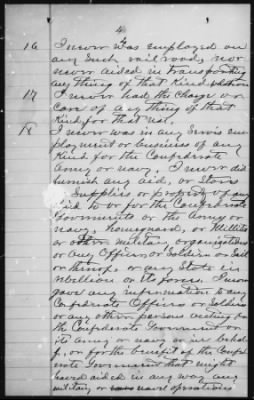 4
16 I never was employed on
any such railroads, nor
never aided in transporting
any thing of that Kind
17 I never had the Charge or
Care of any thing of that
Kind for that use.
18 I never was in any Servis em
ployment or business of any
Kind for the Confederate
Army or navy, I never did
furnish any aid, or Stors
Supplies or property of any
Kid to or for the Confederate
Governments or the Army or
navy, homeguard, or Millitia
or other military organizations
or any Officers or Soldiers or Sail
or thereof, or any State in
rebellion or its forces. I never
gave any information to any
Confederate Officers or Soldiers
or any other persons acting for
the Confederate Government or
its army or navy or in behal
f, or for the benefit of the Confed
rate Government that might
have aided in any way any
military or naval operations